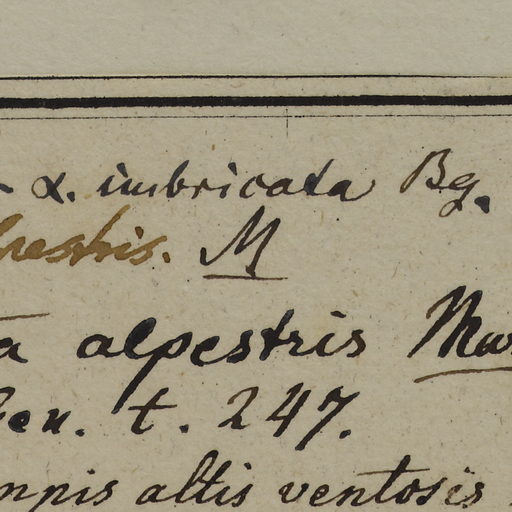 α. imbricata Bg.
pestris. M
a alpestris Mus
en. t. 247.
mpis altis ventosis